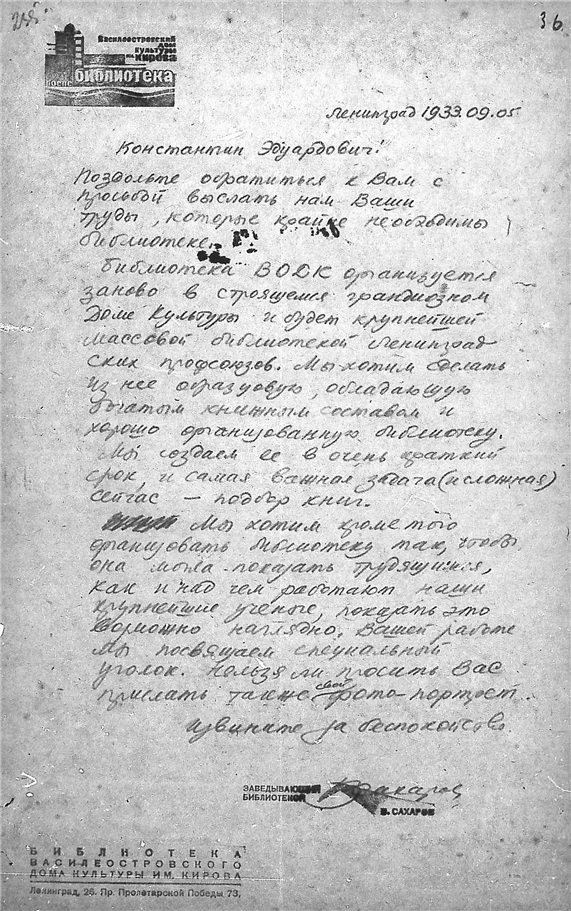 36.
Василеостровский
дом
культуры
им. Кирова
библиотека
Ленинград 1933.09.05
Константин Эдуардович!
Поздольте обратиться к Вам с
просьбой выслать нам Ваши
труды, которые крайне необходимы
библиотеке.
Библиотека ВОДК организуется
заново в строящемся грандиозном
Доме Культуры и будет крупнейшей
массовой библиотекой Ленинград-
ских профсоюзов. Мы хотим сделать
из нее образцовую, обладающую
богатым книжным составом и
хорошо организованную библиотеку.
Мы создаем ее в очень краткий
срок, и самая важная задача (и сложная)
сейчас — подбор книг.
Мы хотим кроме того
организовать библиотеку так, чтобы
она могла показать трудящимся,
как и над чем работают наши
крупнейшие ученые, показать это
возможно наглядно. Вашей работе
мы посвящаем специальный
уголок. Нельзя ли просить Вас
прислать также свой фото-портрет.
Извините за беспокойство.
ЗАВЕДЫВАЮЩИЙ
БИБЛИОТЕКОЙ
В. САХАРОВ
БИБЛИОТЕКА
ВАСИЛЕОСТРОВСКОГО
ДОМА КУЛЬТУРЫ ИМ. КИРОВА
Ленинград, 26. Пр. Пролетарской Победы 73,